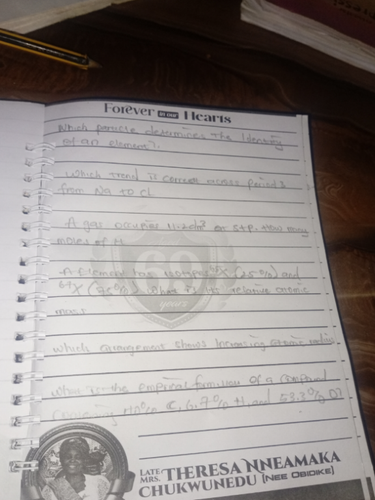 Forever IN OUR Hearts
Which particle determines the Identity
of an element?
Which trend is correct across period 3
from Na to Cl
A gas occupies 11.2dm³ at s.t.p. How many
moles of
A Element has isotopes X (25%) and
X (75%). What is its relative atomic
mass
60
years
Which arrangement shows Increasing atomic radius
What is the empirical formular of a compound
containing 40% C, 6.7% H, and 53.3% O?
LATE MRS. THERESA NNEAMAKA
CHUKWUNEDU (NEE OBIDIKE)